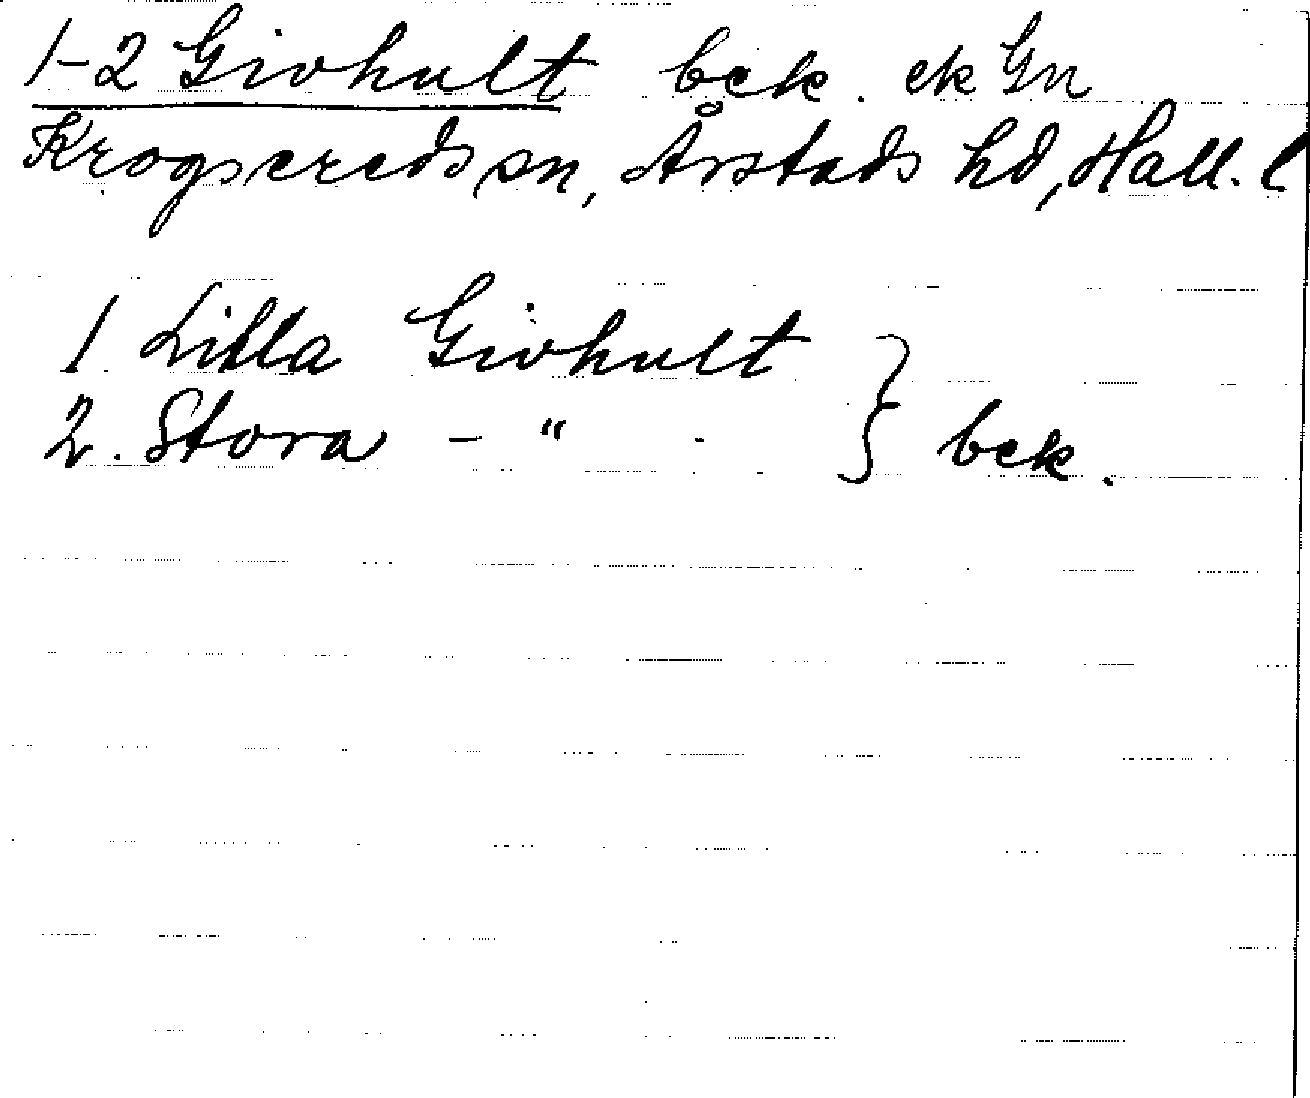 1-2 Givhult bek. ek Gn
Krogsereds sn, Årstads hd, Hall. l
1 Lilla Givhult
2. Stora - " - } bek.